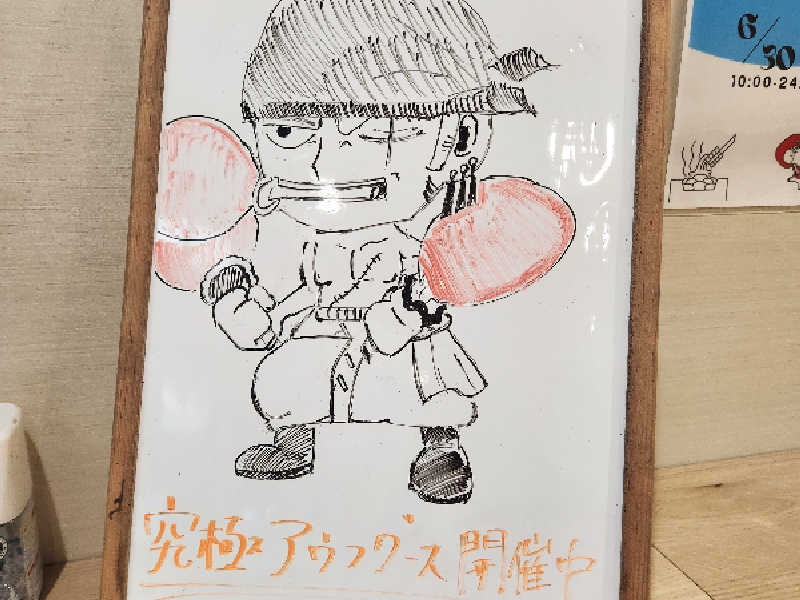 6/30
10:00-24
究極アウフグース開催中